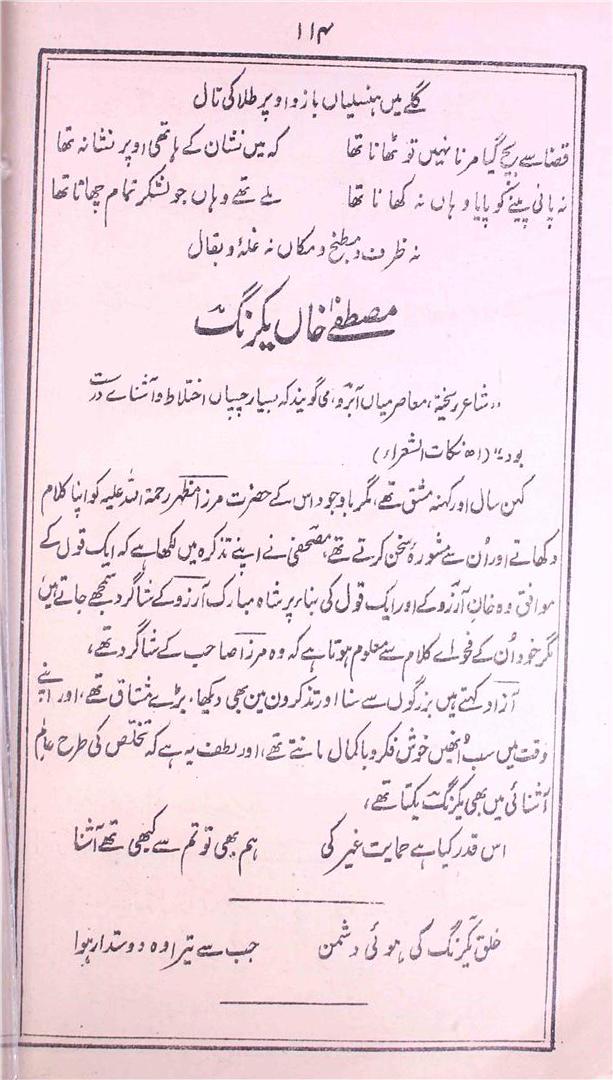 ۱۱۴
گلے میں ہنسلیاں بازو اوپر طلا کی نال
قضا سے بچ گیا مرنا نہیں تو ٹھانا تھا کہ میں نشان کے ہاتھی اوپر نشانہ تھا
نہ پانی پینے کو پایا وہاں نہ کھانا تھا ملے تھے وہاں جو لشکر تمام چھانا تھا
نہ ظرف و مطبخ و مکاں نہ غلہ و بقال
مصطفےٰ خاں یکرنگ
"شاعر ریختہ، معاصر میاں آبرو، می گویند کہ بسیار چسپاں اختلاط و آشناے درست
بود" (اھ نکات الشعراء)
کہن سال اور کہنہ مشق تھے، مگر باوجود اس کے حضرت مرزا مظہر رحمۃ اللہ علیہ کو اپنا کلام
دکھاتے اور اُن سے مشورۂ سخن کرتے تھے، مصحفی نے اپنے تذکرہ میں لکھا ہے کہ ایک قول کے
موافق وہ خان آرزو کے اور ایک قول کی بناء پر شاہ مبارک آرزو کے شاگرد سمجھے جاتے ہیں
مگر خود اُن کے فحواے کلام سے معلوم ہوتا ہے کہ وہ مرزا صاحب کے شاگرد تھے،
آزاد کہتے ہیں بزرگوں سے سنا اور تذکرون مین بھی دیکھا، بڑے مشاق تھے، اور اپنے
وقت میں سب اُنھیں خوش فکر و باکمال مانتے تھے، اور لطف یہ ہے کہ تخلص کی طرح عالم
آشنائی میں بھی یکرنگ یکتا تھے،
اس قدر کیا ہے حمایت غیر کی ہم بھی تو تم سے کبھی تھے آشنا
خلق یکرنگ کی ہوئی دشمن جب سے تیرا وہ دوستدار ہوا